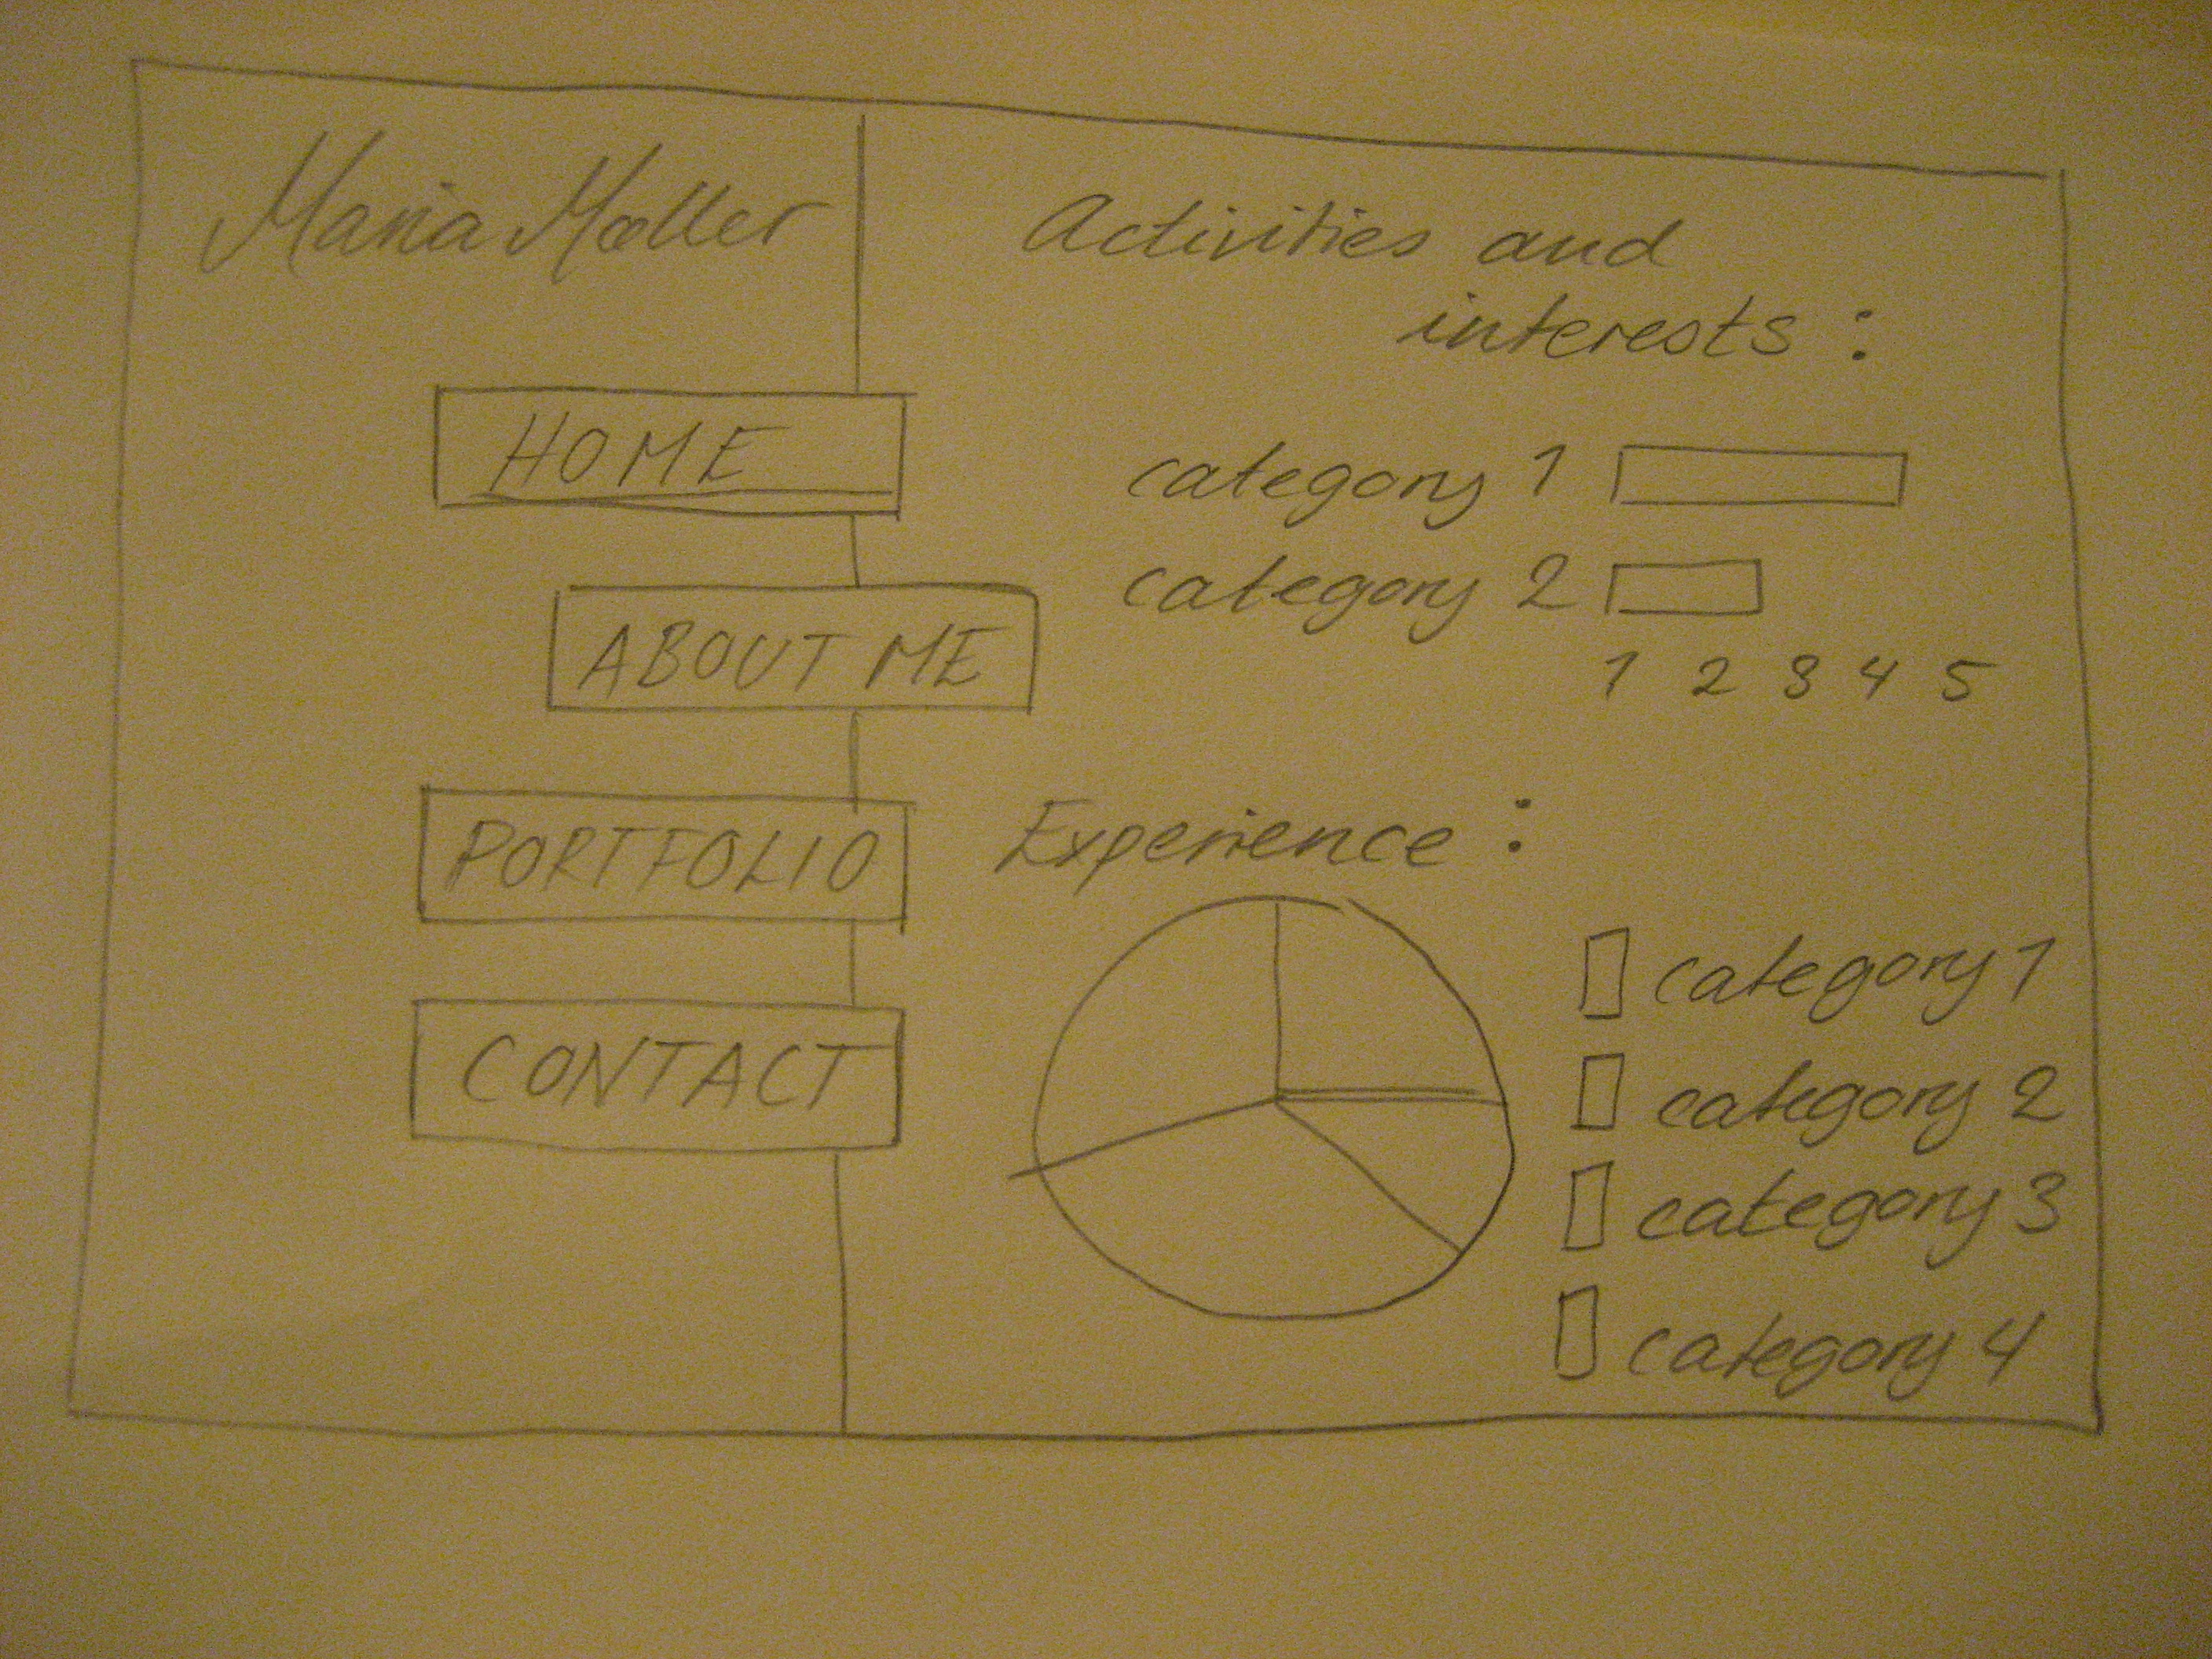 Maria Møller
HOME
ABOUT ME
PORTFOLIO
CONTACT
Activities and
interests :
category 1
category 2
1 2 3 4 5
Experience :
category 1
category 2
category 3
category 4